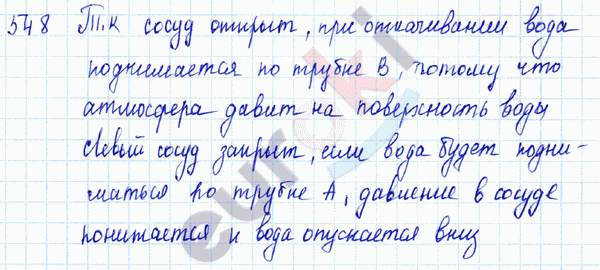 548 Т.к сосуд открыт, при откачивании вода
поднимается по трубке В, потому что
атмосфера давит на поверхность воды
Левый сосуд закрыт, если вода будет подни-
маться по трубке А, давление в сосуде
понижается и вода опускается вниз
euroki